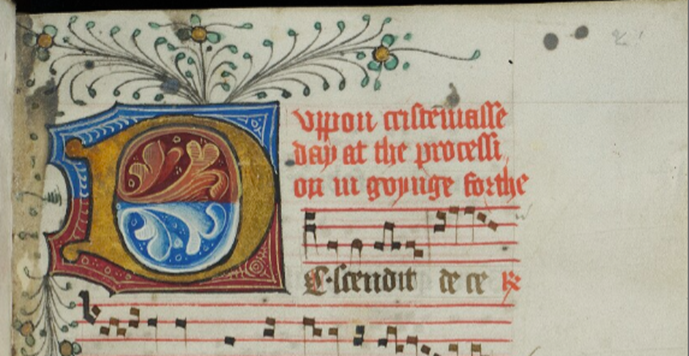 Vppon cristemasse
day at the processi
on in goynge forthe
E·scendit de ce